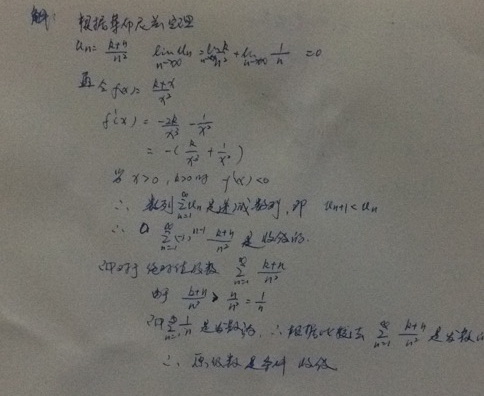 解: 根据莱布尼兹定理
Un = (k+n)/n² lim n→∞ Un = lim n→∞ k/n² + lim n→∞ 1/n = 0
且令 f(x) = (k+x)/x²
f'(x) = -2k/x³ - 1/x²
= -(k/x² + 1/x²)
当 x>0, k>0时 f'(x)<0
∴ 数列 ∑ n=1 ∞ Un 是递减数列, 即 Un+1 < Un
∴ ∑ n=1 ∞ (-1)ⁿ⁻¹ (k+n)/n² 是收敛的.
对于绝对值级数 ∑ n=1 ∞ (k+n)/n²
由于 (k+n)/n² > n/n² = 1/n
∑ n=1 ∞ 1/n 是发散的, ∴ 根据比较法 ∑ n=1 ∞ (k+n)/n² 是发散的
∴ 原级数是条件收敛